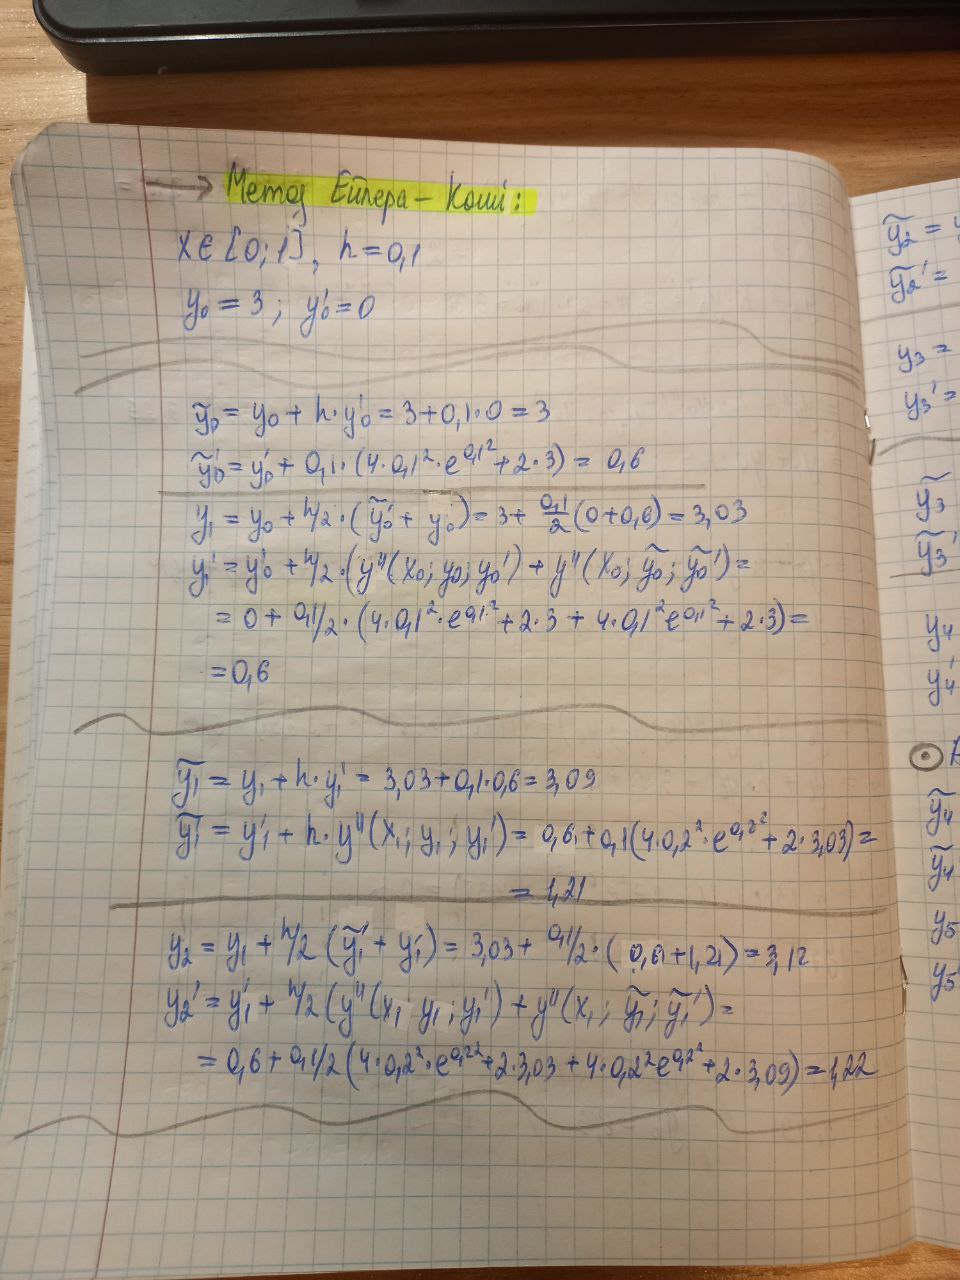 Метод Ейлера – Коші:
x∈[0;1], h=0,1
y₀ = 3 ; y₀' = 0
ỹ₀ = y₀ + h·y₀' = 3+0,1·0 = 3
ỹ₀' = y₀' + 0,1·(4·0,1²·e^0,1² + 2·3) = 0,6
y₁ = y₀ + h/2·(ỹ₀' + y₀') = 3 + 0,1/2 (0+0,6) = 3,03
y₁' = y₀' + h/2·(y''(x₀; y₀; y₀') + y''(x₀; ỹ₀; ỹ₀') =
= 0 + 0,1/2·(4·0,1²·e^0,1² + 2·3 + 4·0,1² e^0,1² + 2·3) =
= 0,6
ỹ₁ = y₁ + h·y₁' = 3,03+0,1·0,6 = 3,09
ỹ₁' = y₁' + h·y''(x₁; y₁; y₁') = 0,6+0,1(4·0,2²·e^0,2² + 2·3,03) =
= 1,21
y₂ = y₁ + h/2 (ỹ₁' + y₁') = 3,03 + 0,1/2·(0,6+1,21) = 3,12
y₂' = y₁' + h/2 (y''(x₁ y₁; y₁') + y''(x₁; ỹ₁; ỹ₁') =
= 0,6 + 0,1/2 (4·0,2²·e^0,2² + 2·3,03 + 4·0,2² e^0,2² + 2·3,09) = 1,22
ỹ₂ =
ỹ₂' =
y₃ =
y₃' =
ỹ₃
ỹ₃'
y₄
y₄'
ỹ₄
ỹ₄'
y₅
y₅'